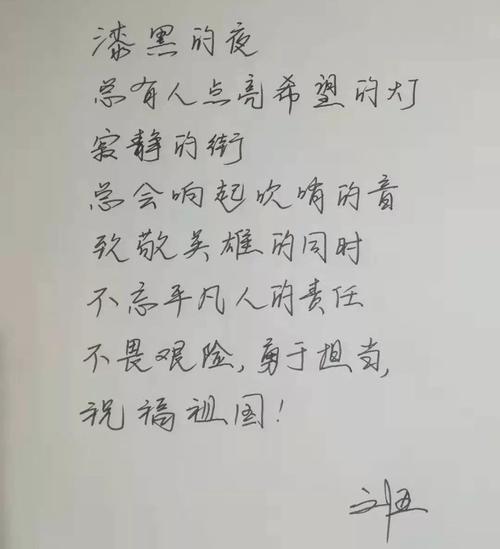 漆黑的夜
总有人点亮希望的灯
寂静的街
总会响起吹哨的音
致敬英雄的同时
不忘平凡人的责任
不畏艰险,勇于担当,
祝福祖国!